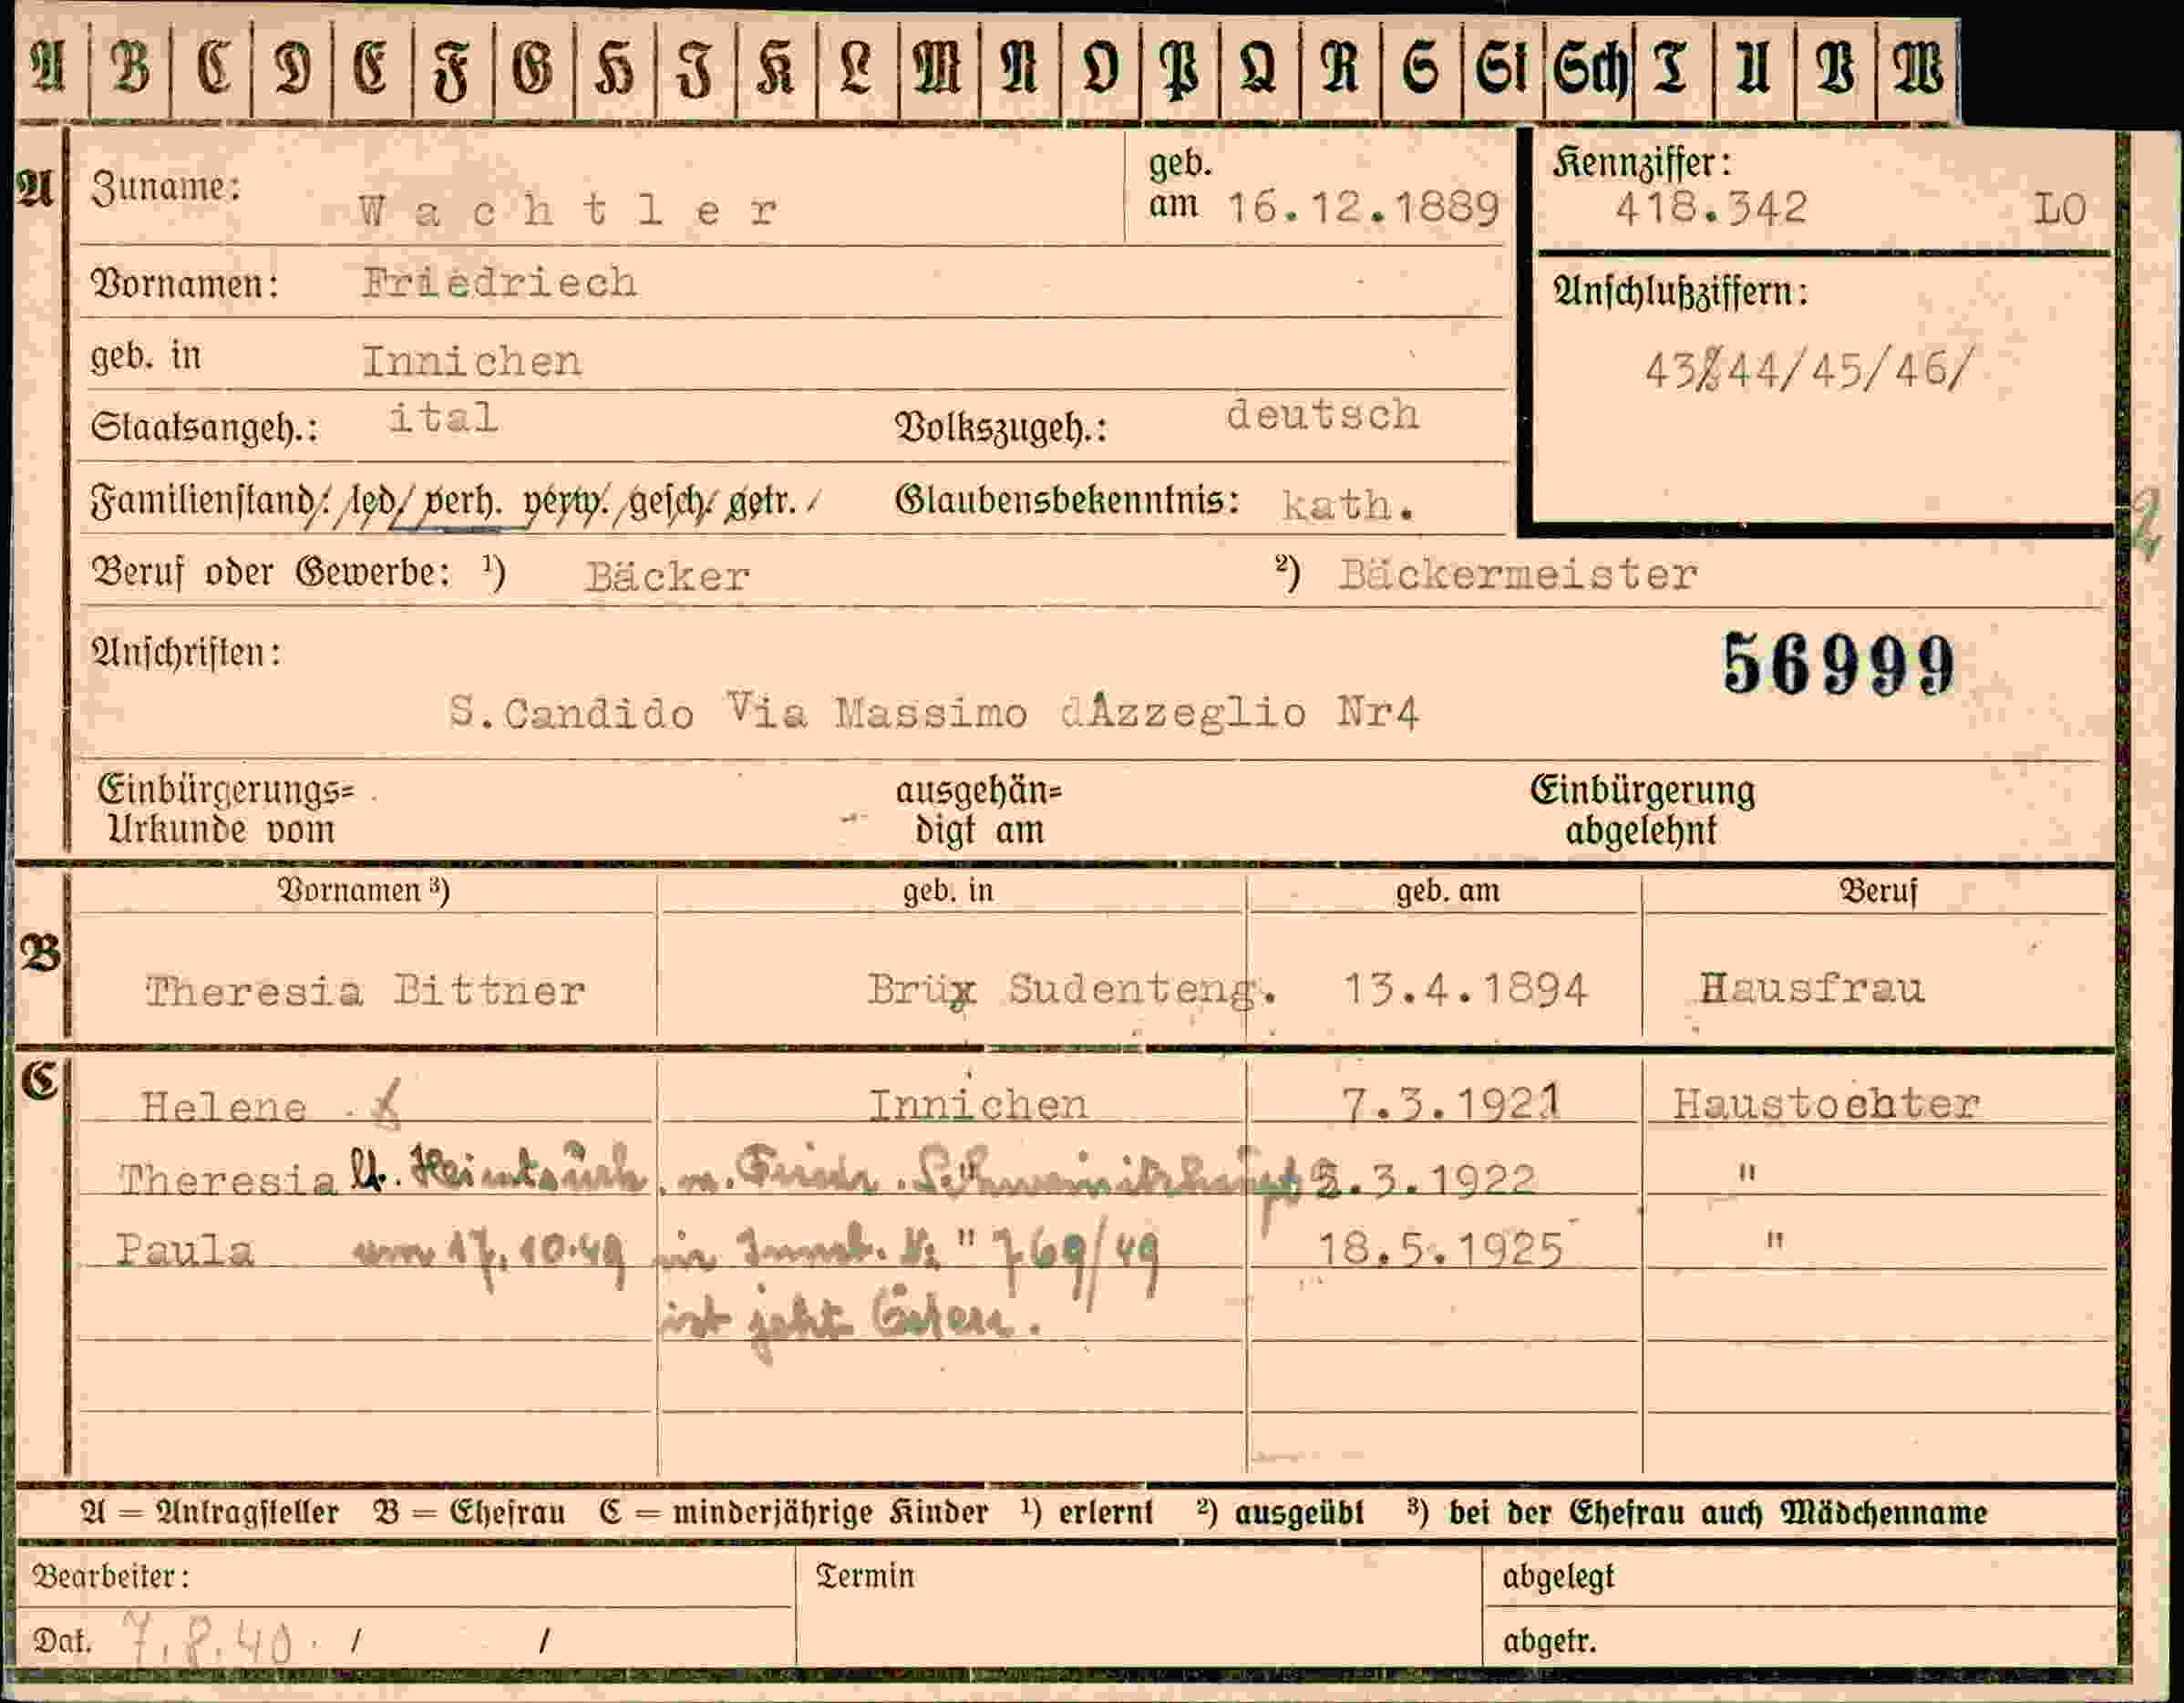 A B C D E F G H I K L M N O P Q R S St Sch T U V W
A Zuname: Wachtler geb. am 16.12.1889 Kennziffer: 418.342 LO
Vornamen: Friedriech Anschlußziffern:
geb. in Innichen 43/44/45/46/
Staatsangeh.: ital Volkszugeh.: deutsch
Familienstand: led. verh. verw. gesch. getr. Glaubensbekenntnis: kath.
2
Beruf oder Gewerbe: ¹) Bäcker ²) Bäckermeister
Anschriften: 56999
S.Candido Via Massimo dAzzeglio Nr4
Einbürgerungs= ausgehän= Einbürgerung
Urkunde vom digt am abgelehnt
Vornamen ³) geb. in geb. am Beruf
B
Theresia Bittner Brüx Sudenteng. 13.4.1894 Hausfrau
C
Helene Innichen 7.3.1921 Haustochter
Theresia lt. m. Friedr. " .3.1922 "
Paula am 17.10.49 in Innsb. " 769/49 18.5.1925 "
ist jetzt Österr.
A = Antragsteller B = Ehefrau C = minderjährige Kinder ¹) erlernt ²) ausgeübt ³) bei der Ehefrau auch Mädchenname
Bearbeiter: Termin abgelegt
Dat. 7.8.40. / / abgetr.